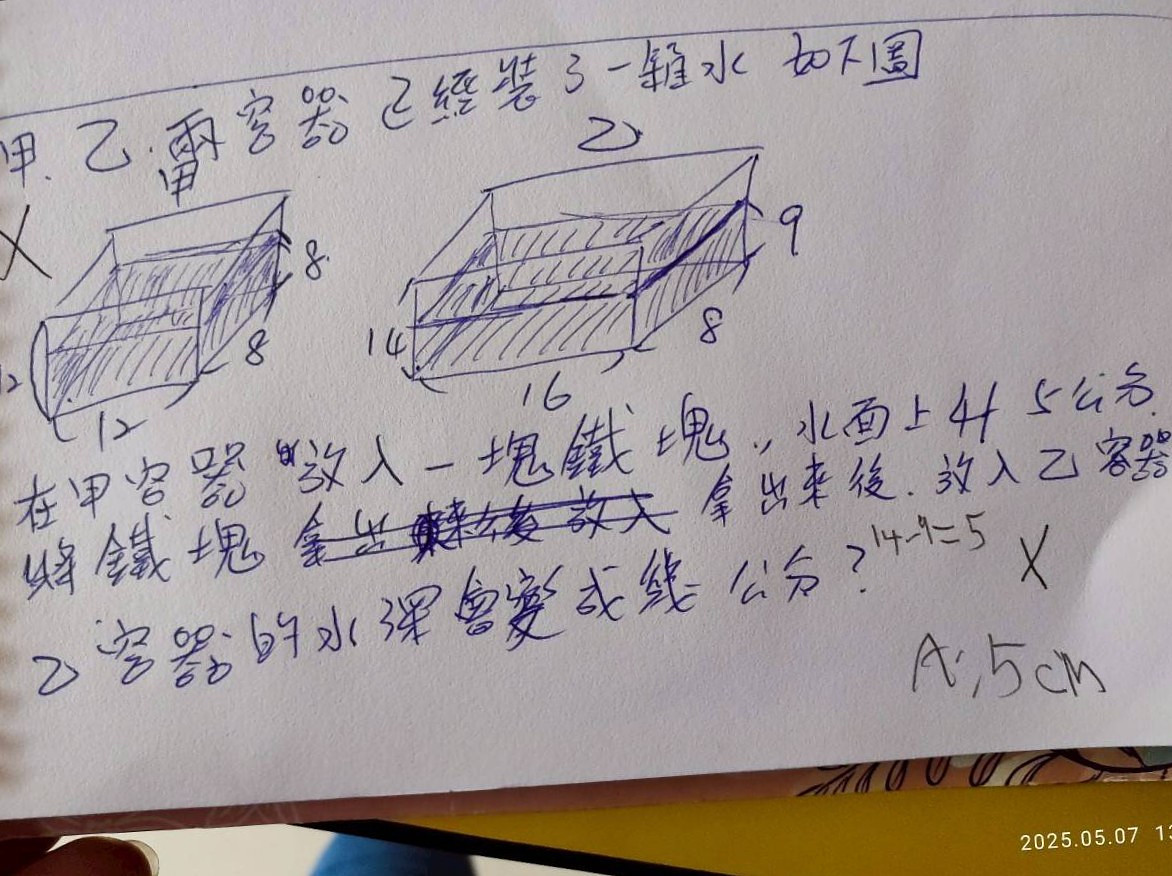 甲、乙.兩容器已經裝了一雖水 如下圖
甲
乙
8
8
12
9
14
8
16
在甲容器放入一塊鐵塊,水面上升5公分.
將鐵塊拿出來後放入拿出來後.放入乙容器
乙容器的水深會變成幾公分?
14-9=5
A:5cm
2025.05.07 13